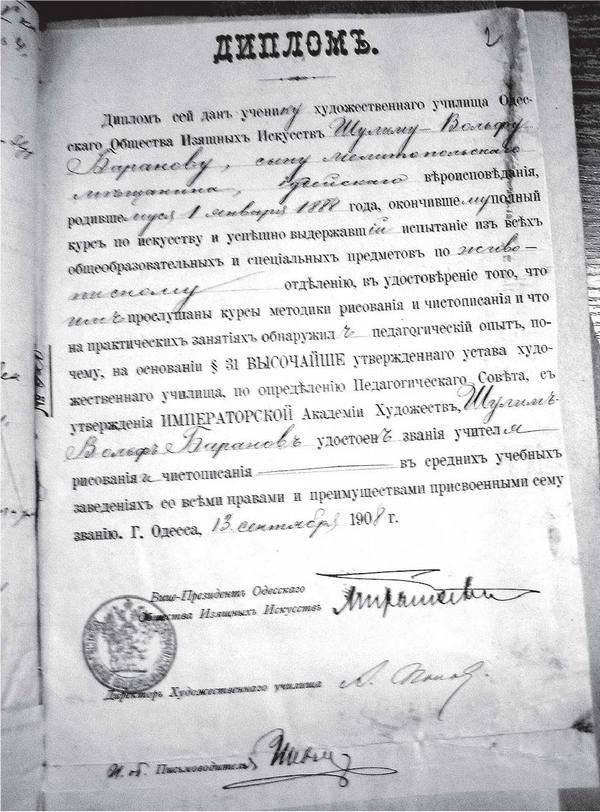 2
ДИПЛОМЪ.
Дипломъ сей данъ ученику художественнаго училища Одес-
скаго Общества Изящныхъ Искусствъ Шулиму-Вольфу
Баранову, сыну мелитопольскаго
мѣщанина, іудейскаго вѣроисповѣданія,
родившемуся 1 января 1888 года, окончившему полный
курсъ по искусству и успѣшно выдержавшій испытаніе изъ всѣхъ
общеобразовательныхъ и спеціальныхъ предметовъ по живо-
писному отдѣленію, въ удостовѣреніе того, что
имъ прослушаны курсы методики рисованія и чистописанія и что
на практическихъ занятіяхъ обнаружилъ педагогическій опытъ, по-
чему, на основаніи § 31 ВЫСОЧАЙШЕ утвержденнаго устава худо-
жественнаго училища, по опредѣленію Педагогическаго Совѣта, съ
утвержденія ИМПЕРАТОРСКОЙ Академіи Художествъ, Шулимъ-
Вольфъ Барановъ удостоенъ званія учителя
рисованія и чистописанія въ среднихъ учебныхъ
заведеніяхъ со всѣми правами и преимуществами присвоенными сему
званію. Г. Одесса, 13 сентября 1908 г.
Вице-Президентъ Одесскаго
Общества Изящныхъ Искусствъ
Директоръ Художественнаго училища
И. об. Письмоводителя